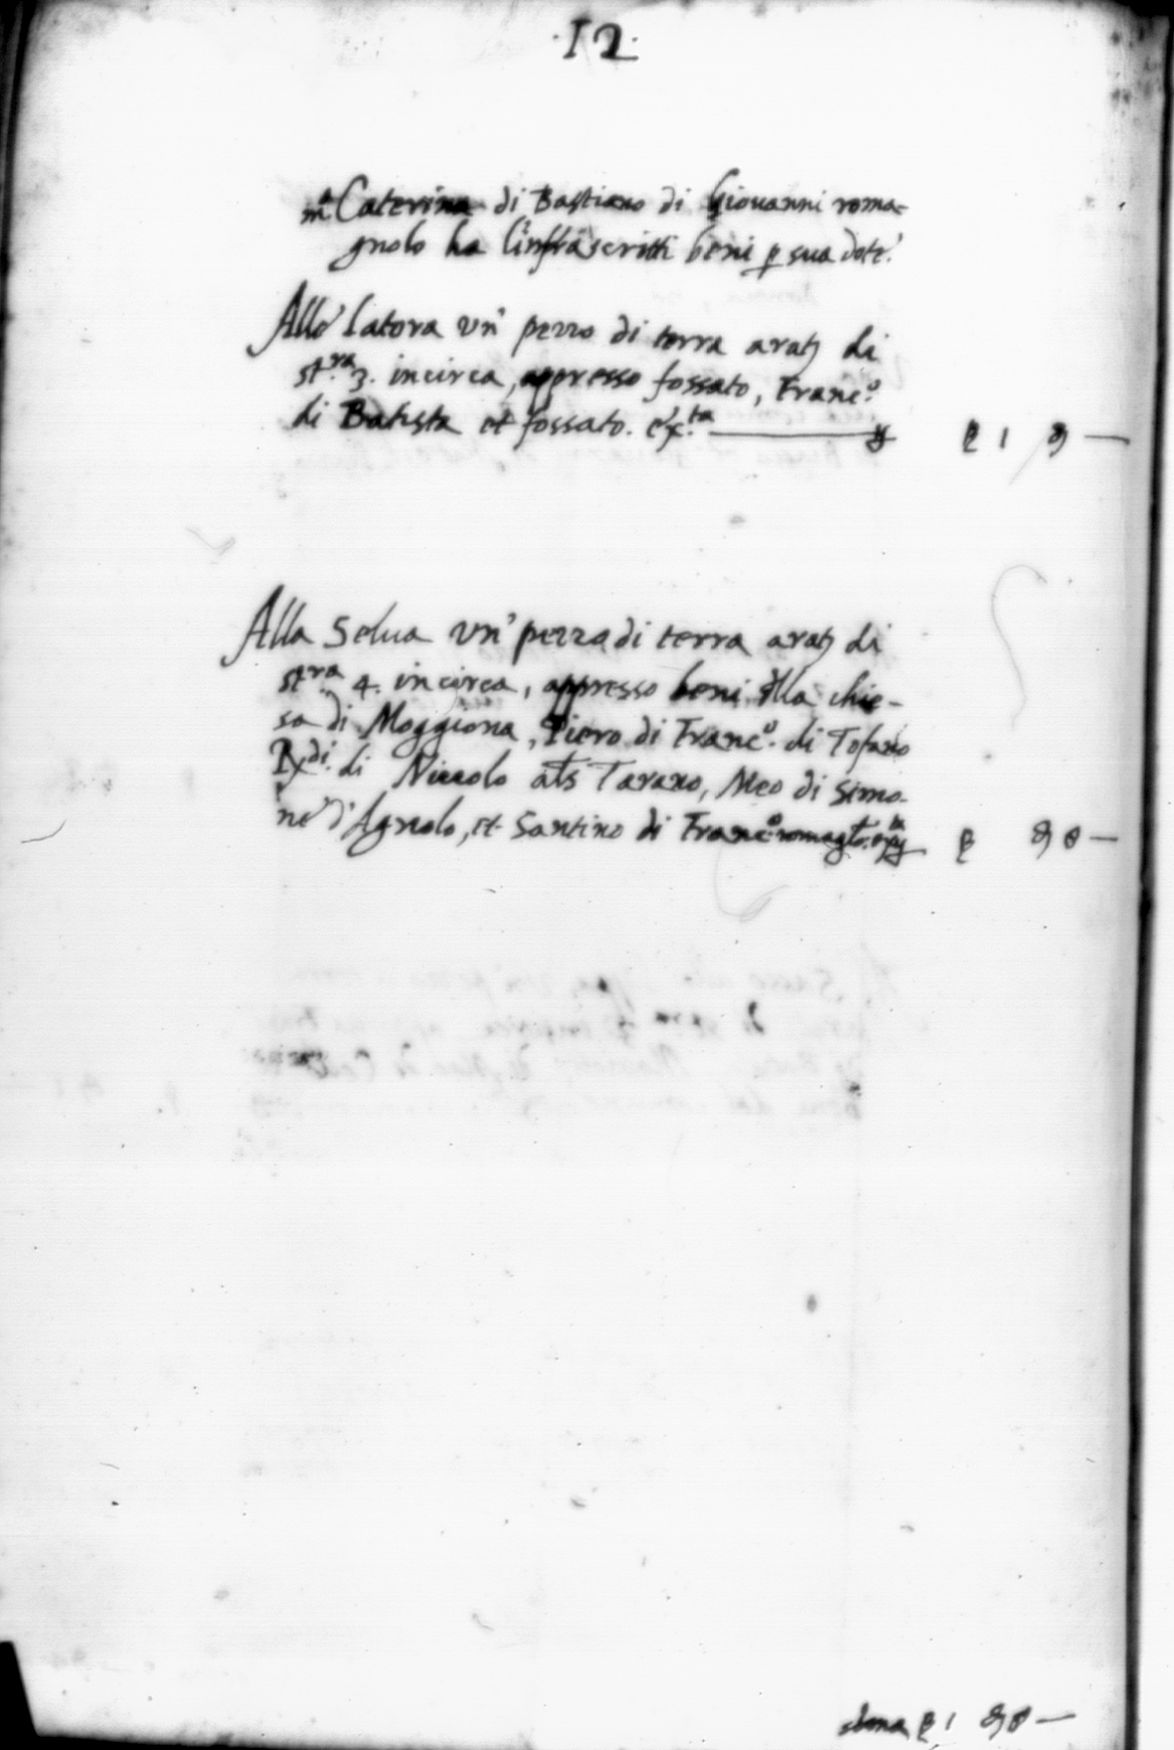 ·12·
mª Caterina di Bastiano di Giovanni roma-
gnolo ha l'infrascritti beni p sua dote.
Alle latora un' pezzo di terra arat; di
st.ra 3. incirca, appresso fossato, Franc.º
di Batista et fossato. ex.ta
1
Alla Selua un' pezzo di terra arat; di
st.ra 4. incirca, appresso beni dlla chie-
sa di Moggiona, Piero di Franc.º di Tofano
Rx.di di Niccolo als Tarano, Meo di Simo-
ne d'Agnolo, et Santino di Franc.º romaglo.
8 —
1 8 —